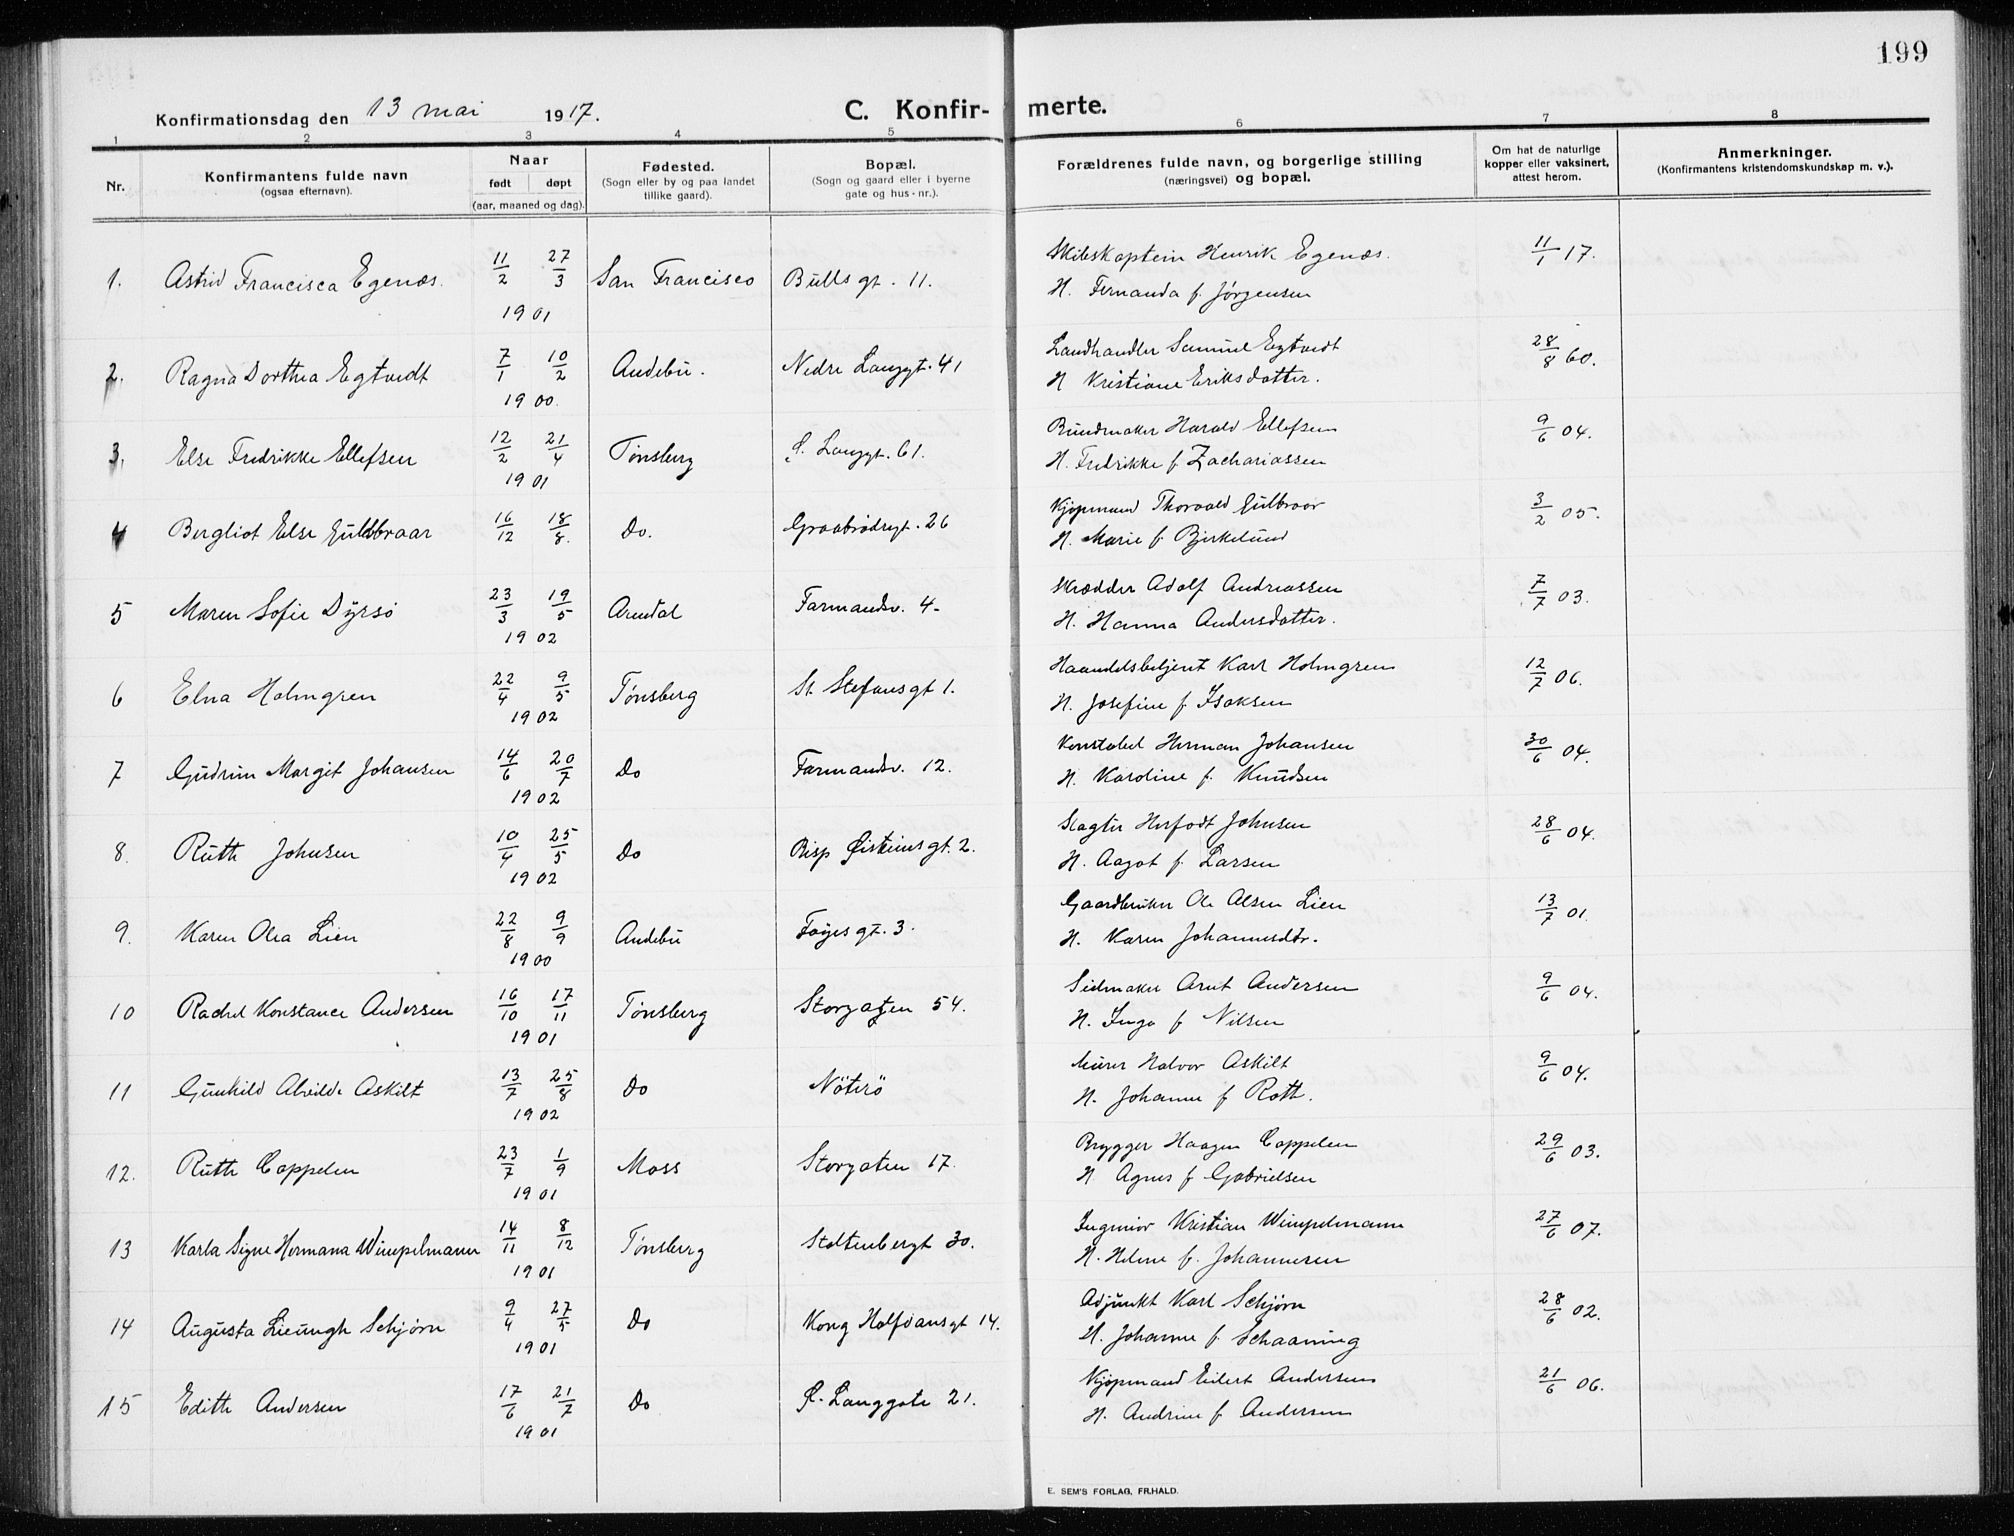 199
Konfirmationsdag den 13 mai 1917.
C. Konfirmerte.
1 2 3 4 5 6 7 8
Nr.
Konfirmantens fulde navn
(ogsaa efternavn).
Naar
født døpt
(aar, maaned og dag).
Fødested.
(Sogn eller by og paa landet
tillike gaard).
Bopæl.
(Sogn og gaard eller i byerne
gate og hus-nr.).
Forældrenes fulde navn, og borgerlige stilling
(næringsvei) og bopæl.
Om hat de naturlige
kopper eller vaksinert,
attest herom.
Anmerkninger.
(Konfirmantens kristendomskundskap m. v.).
1. Astrid Francisca Egenæs. 11/2 27/3 1901 San Francisco Bulls gt. 11. Skibskaptein Henrik Egenæs. 11/1 17.
H. Fernanda f. Jørgensen
2. Ragna Dorthea Egtvedt 7/1 10/2 1900. Andebu. Nedre Langgt. 41 Landhandler Samuel Egtvedt 28/8 60.
H Kristiane Eriksdatter.
3. Else Fredrikke Ellefsen 12/2 21/4 1901 Tønsberg Ø. Langgt. 61. Bundmaker Harald Ellefsen 9/6 04.
H. Fredrikke f Zachariassen
4 Bergliot Else Guldbraar 16/12 18/8. Do. Graabrødregt. 26 Kjøpmand Thorvald Gulbraar 3/2 05.
H. Marie f. Bjerkelund
5 Maren Sofie Dyrsø 23/3 19/5 1902 Arendal Farmandsv. 4- Skrædder Adolf Andreassen 7/7 03.
H. Hanna Andersdatter.
6 Elna Holmgren 22/4 9/5 1902 Tønsberg St. Stefansgt 1. Haandelsbetjent Karl Holmgren 12/7 06.
H. Josefine f Isaksen
7 Gudrun Margit Johansen 14/6 20/7 1902 Do Farmandsv. 12. Konstabel Herman Johansen 30/6 04.
H. Karoline f. Knudsen
8. Ruth Johnsen 10/4 25/5 1902 Do Bisp Øisteinsgt. 2. Slagter Herfodt Johnsen 28/6 04.
H. Aagot f. Larsen
9. Karen Olea Lien 22/8 9/9 1900 Andebu Føyes gt. 3. Gaardbruker Ole Olsen Lien 13/7 01.
H. Karen Johannesdtr.
10 Rachel Konstance Andersen 16/10 17/11 1901 Tønsberg Storgaten 54. Seilmaker Arnt Andersen 9/6 04.
H. Inga f Nilsen
11 Gunhild Alvilde Askilt 13/7 25/8 1902 Do Nöterö Murer Halvor Askilt 9/6 04.
H. Johanne f Roth.
12. Ruth Cappelen 23/7 1/9 1901 Moss Storgaten 17. Brygger Haagen Cappelen 29/6 03.
H. Agnes f Gabrielsen
13 Karla Signe Hermana Wimpelmann 14/11 8/12 1901 Tønsberg Stoltenbergt 30. Ingeniør Kristian Wimpelmann 27/6 07.
H. Helene f. Johannesen
14 Augusta Lieungh Schjørn 9/4 27/5 1901 Do Kong Halfdansgt 14. Adjunkt Karl Schjørn 28/6 02.
H. Johanne f. Schaaning
15 Edith Andersen 17/6 21/7 1901 Do Ø. Langgate 21. Kjøpmand Eilert Andersen 21/6 06.
H. Andrine f Andersen
E. SEM'S FORLAG, FR.HALD.